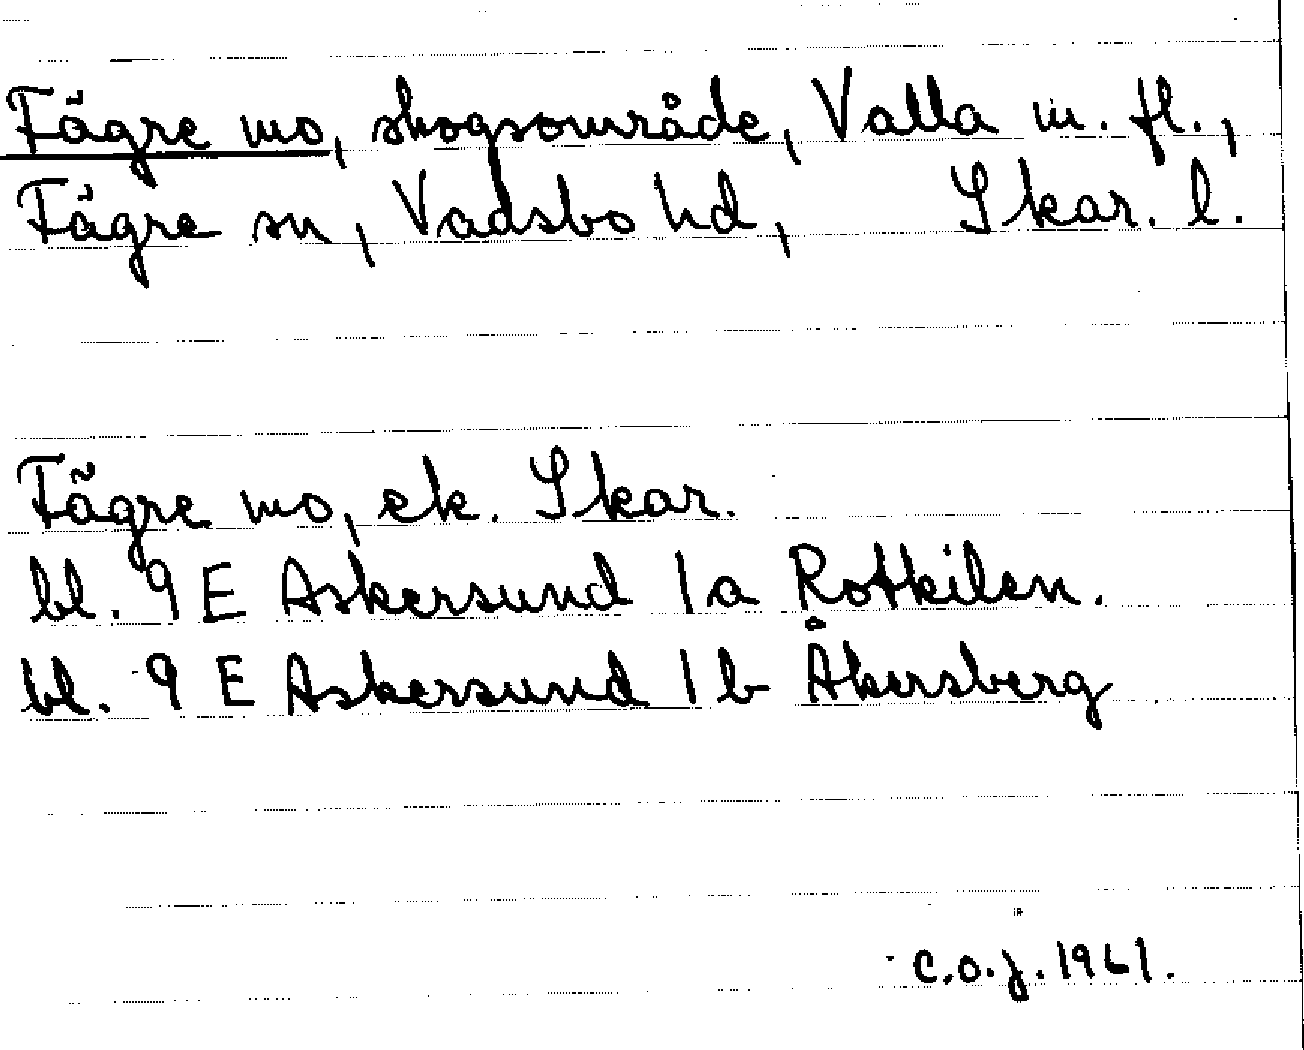 Fägre mo, skogsområde, Valla m. fl.,
Fägre sn, Vadsbo hd, Skar. l.
Fägre mo, ek. Skar.
bl. 9 E Askersund 1a Rotkilen.
bl. 9 E Askersund 1b Åkersberg
C.O.J. 1961.